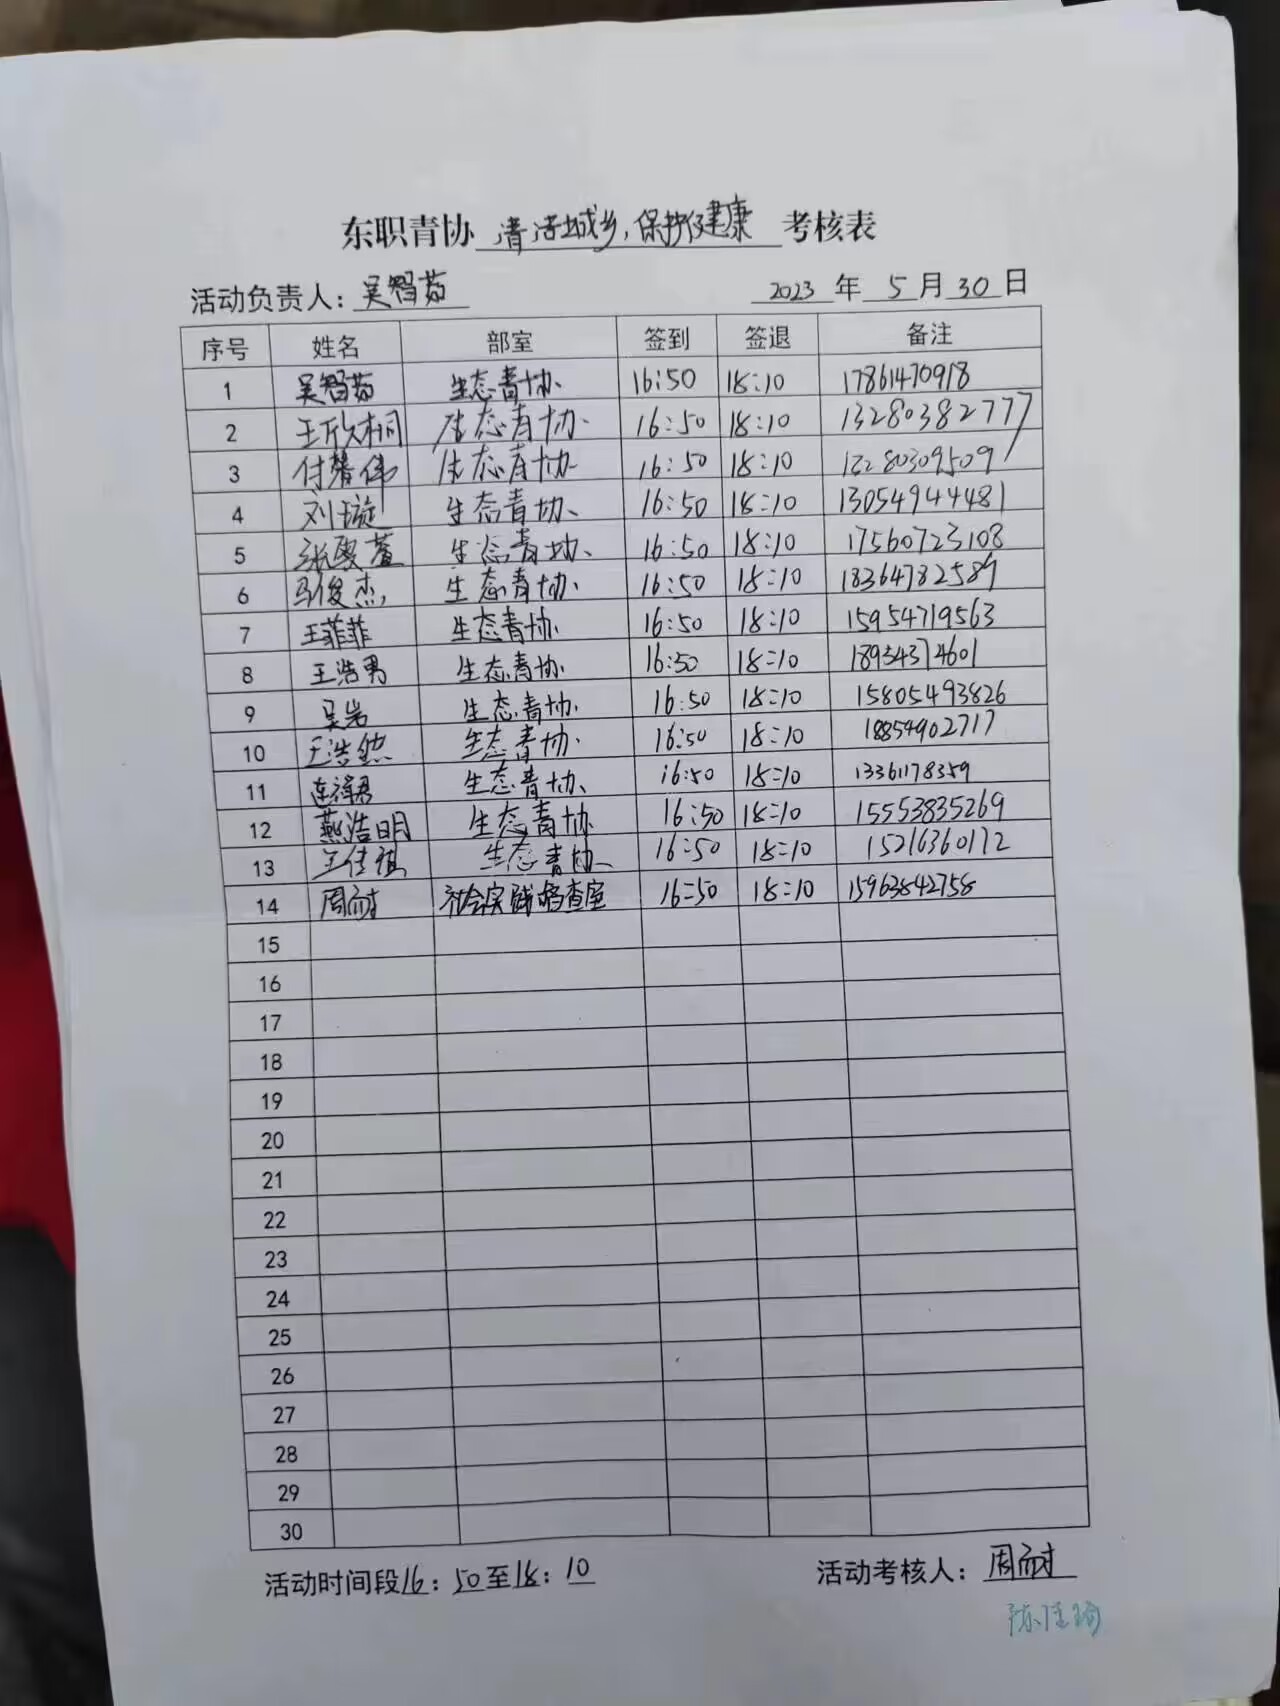 东职青协 清洁城乡,保护健康 考核表
活动负责人: 吴智茹 2023 年 5 月 30 日
序号 姓名 部室 签到 签退 备注
1 吴智茹 生态青协 16:50 18:10 17861470918
2 王欣桐 生态青协 16:50 18:10 13280382777
3 付馨伟 生态青协 16:50 18:10 13280309509
4 刘璇 生态青协 16:50 18:10 13054944481
5 张雯萱 生态青协 16:50 18:10 17560723108
6 马俊杰 生态青协 16:50 18:10 18364782589
7 王菲菲 生态青协 16:50 18:10 15954719563
8 王浩男 生态青协 16:50 18:10 18954374601
9 吴岩 生态青协 16:50 18:10 15805493826
10 王浩然 生态青协 16:50 18:10 18854902717
11 生态青协 16:50 18:10 13361178359
12 燕浩明 生态青协 16:50 18:10 15553835269
13 王佳祺 生态青协 16:50 18:10 15216360172
14 周耐 社会实践稽查室 16:50 18:10 15963842758
15
16
17
18
19
20
21
22
23
24
25
26
27
28
29
30
活动时间段16:50至18:10 活动考核人: 周耐